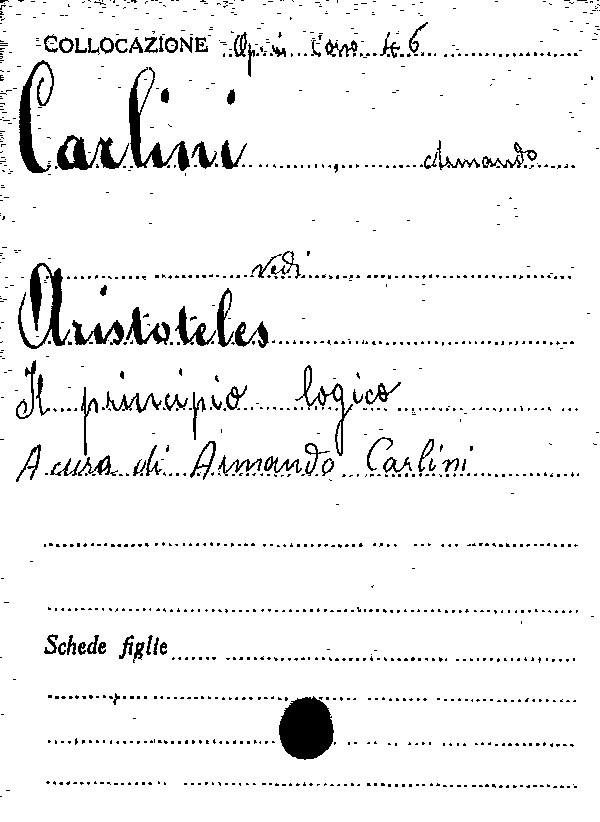 COLLOCAZIONE
Carlini, Armando
vedi
Aristoteles
Il principio logico
A cura di Armando Carlini
Schede figlie